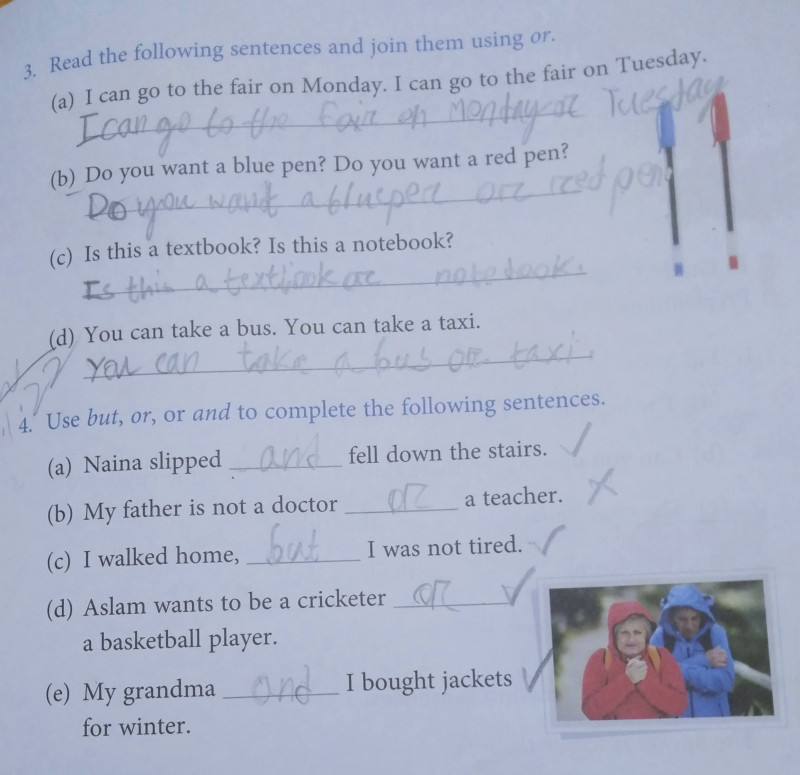 3. Read the following sentences and join them using or.
(a) I can go to the fair on Monday. I can go to the fair on Tuesday.
I can go to the fair on Monday or Tuesday
(b) Do you want a blue pen? Do you want a red pen?
Do you want a blue pen or red pen
(c) Is this a textbook? Is this a notebook?
Is this a textbook or notebook.
(d) You can take a bus. You can take a taxi.
You can take a bus or taxi.
4. Use but, or, or and to complete the following sentences.
(a) Naina slipped and fell down the stairs.
(b) My father is not a doctor or a teacher.
(c) I walked home, but I was not tired.
(d) Aslam wants to be a cricketer or
a basketball player.
(e) My grandma and I bought jackets
for winter.